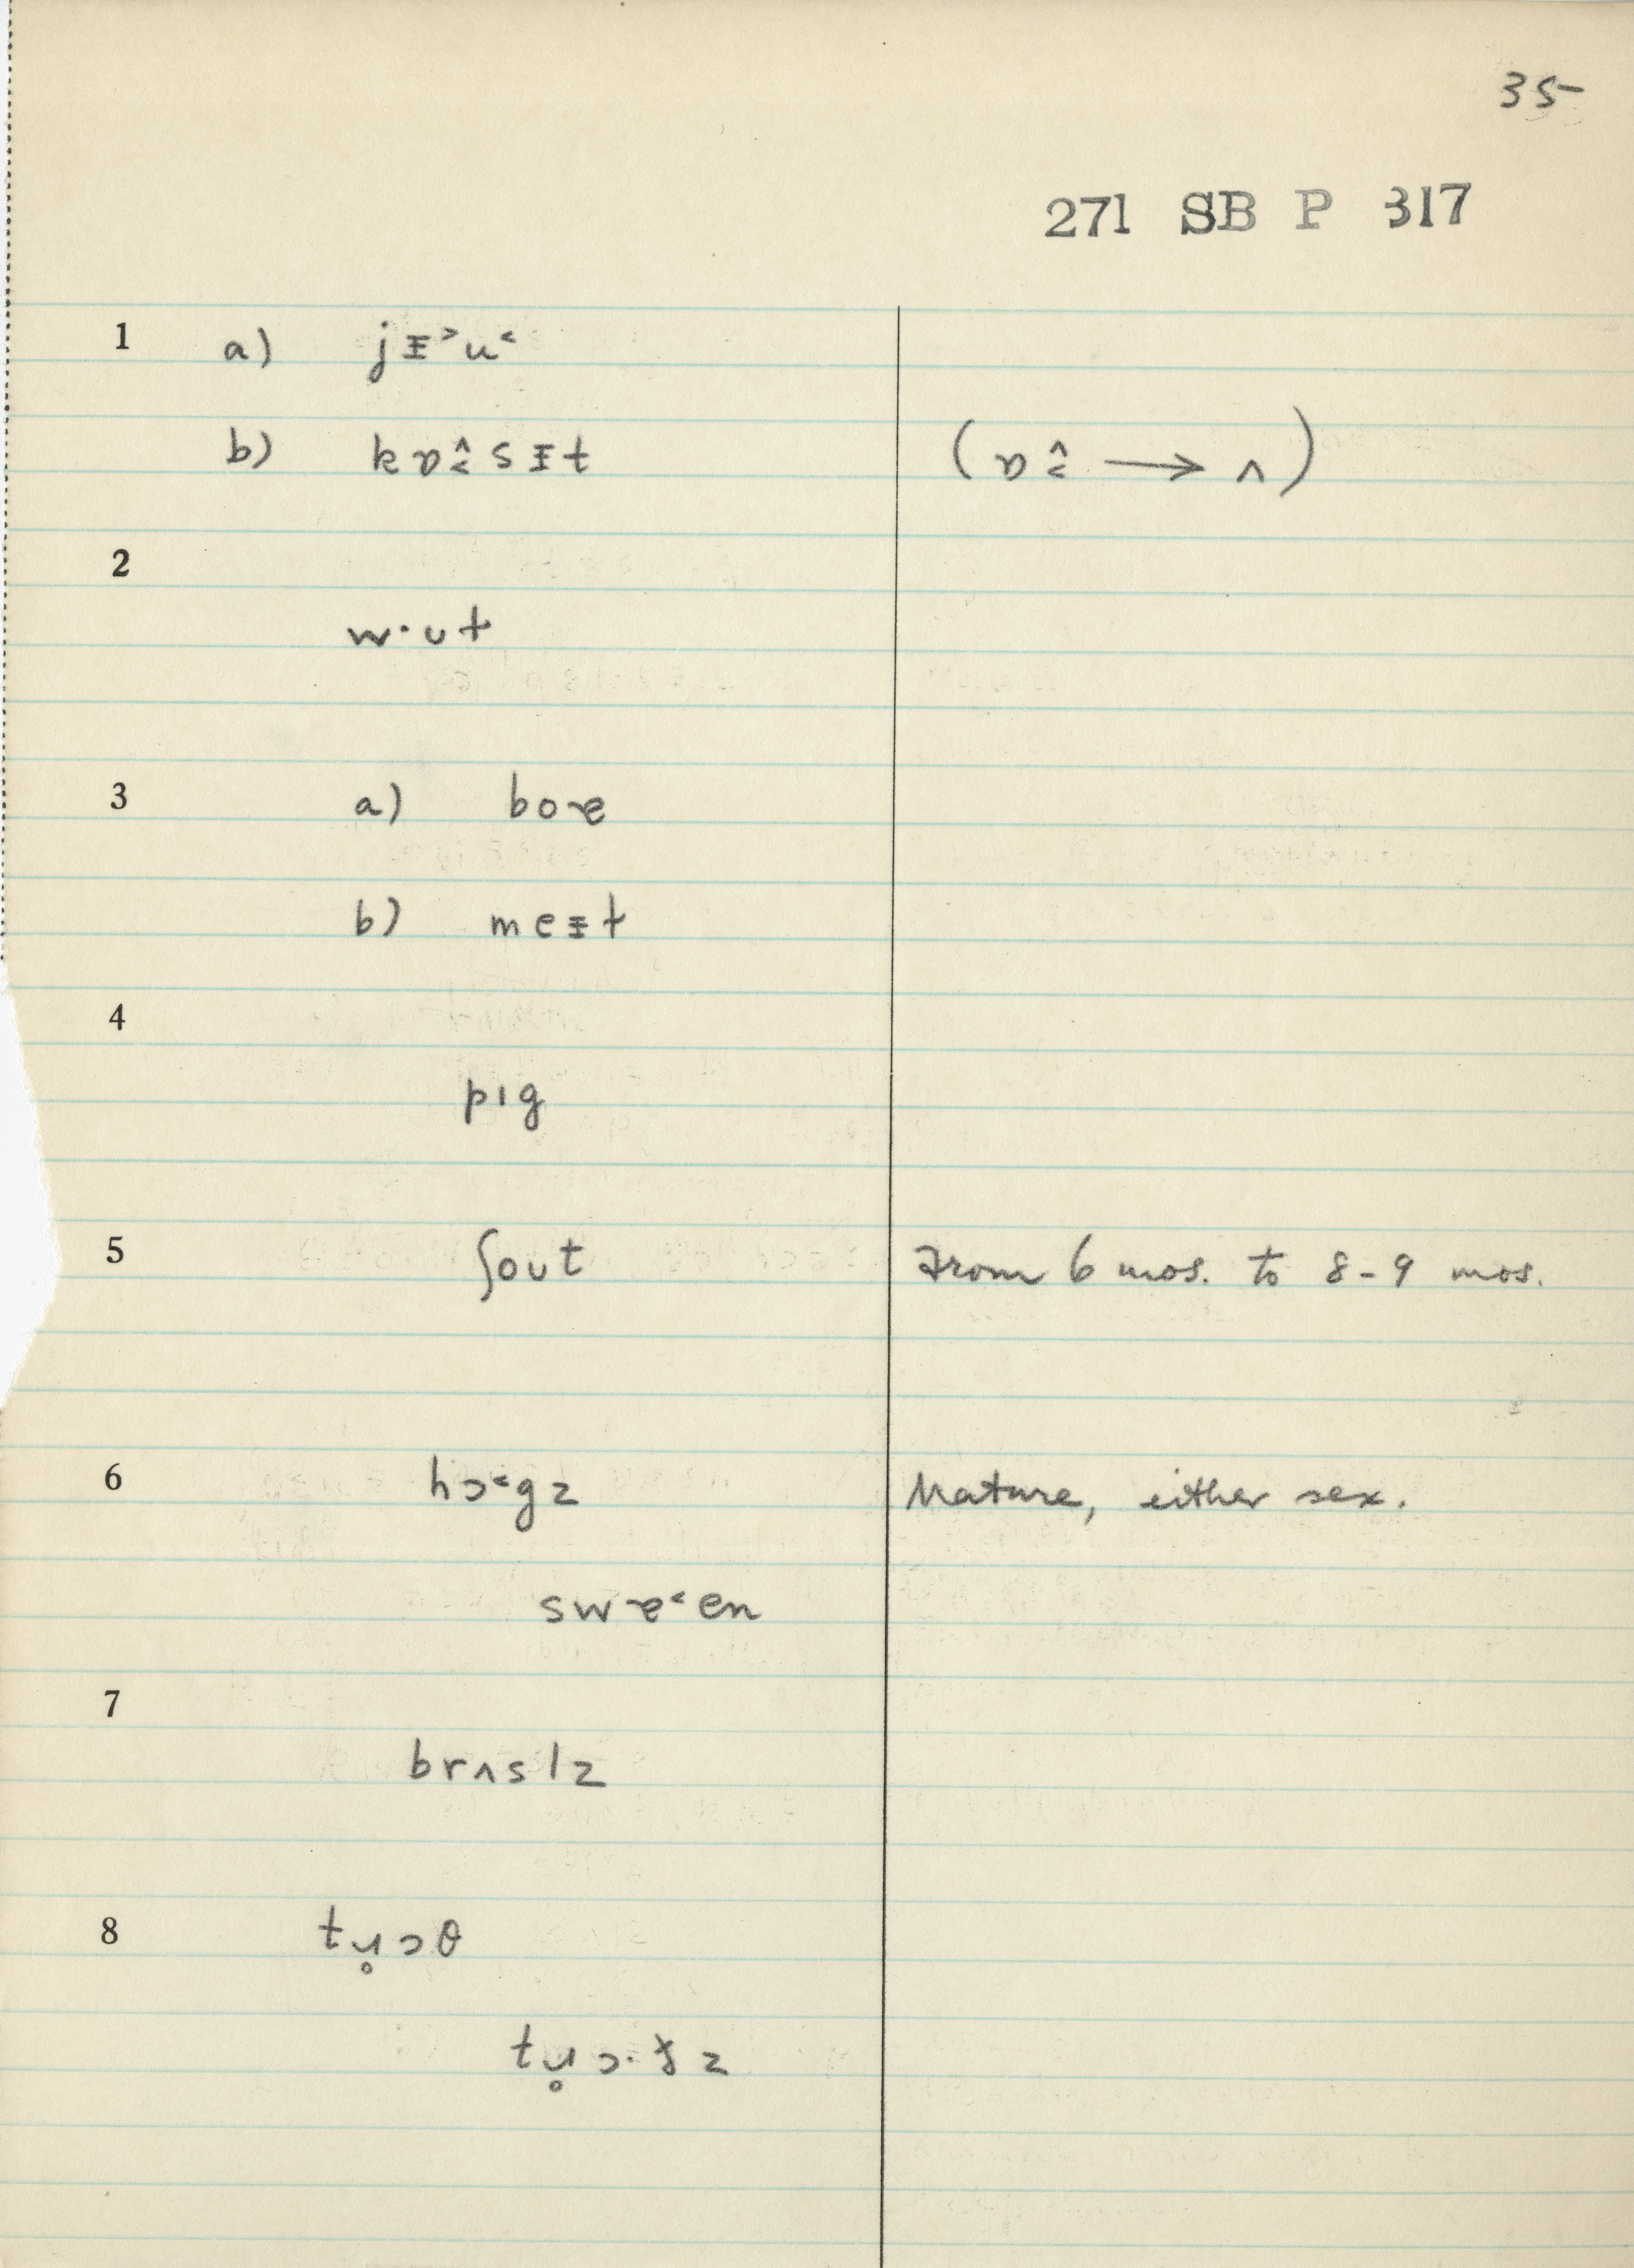 35
271 SB P 317
1 a) jᵻ˃u˂
b) kɒ̭̂sᵻt (ɒ̭̂ → ʌ)
2
w·ʊt
3 a) boɐ
b) meᵻt
4
pɪg
5 ʃoʊt From 6 mos. to 8-9 mos.
6 hɔ˂gz Mature, either sex.
swɐ˂en
7
brʌslz
8 tɥ̥ɔθ
tɥ̥ɔ·ðz